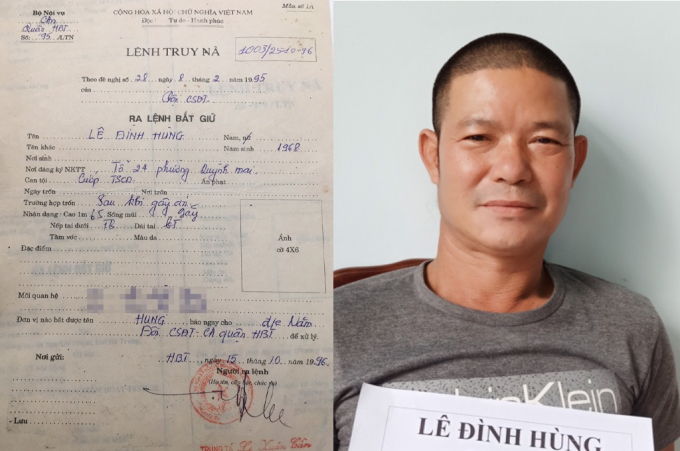 Bộ Nội vụ
CỘNG HÒA XÃ HỘI CHỦ NGHĨA VIỆT NAM
Mẫu số 1A
CA
Quận HBT
Độc lập Tự do Hạnh phúc
Số: 95 /LTN
LỆNH TRUY NÃ
1003/25-10-96
Theo đề nghị số 28 ngày 8 tháng 2 năm 1995
của Đội CSĐT
RA LỆNH BẮT GIỮ
Tên LÊ ĐÌNH HÙNG Nam, nữ
Tên khác Năm sinh 1968
Nơi sinh
Nơi đăng ký NKTT Tổ 24 phường Quỳnh mai
Can tội Cướp TSCD Án phạt
Ngày trốn Nơi trốn
Trường hợp trốn Sau khi gây án
Nhận dạng: Cao 1m 65 Sống mũi
Nếp tai dưới TB Dái tai
Tầm vóc Màu da
Đặc điểm
Ảnh
cỡ 4X6
Mối quan hệ
Đơn vị nào bắt được tên HÙNG báo ngay cho
Đội CSĐT - CA quận HBT để xử lý.
Nơi gửi:
HBT, ngày 15 tháng 10 năm 1996
Người ra lệnh
- Lưu
TRUNG TÁ
Klein
LÊ ĐÌNH HÙNG